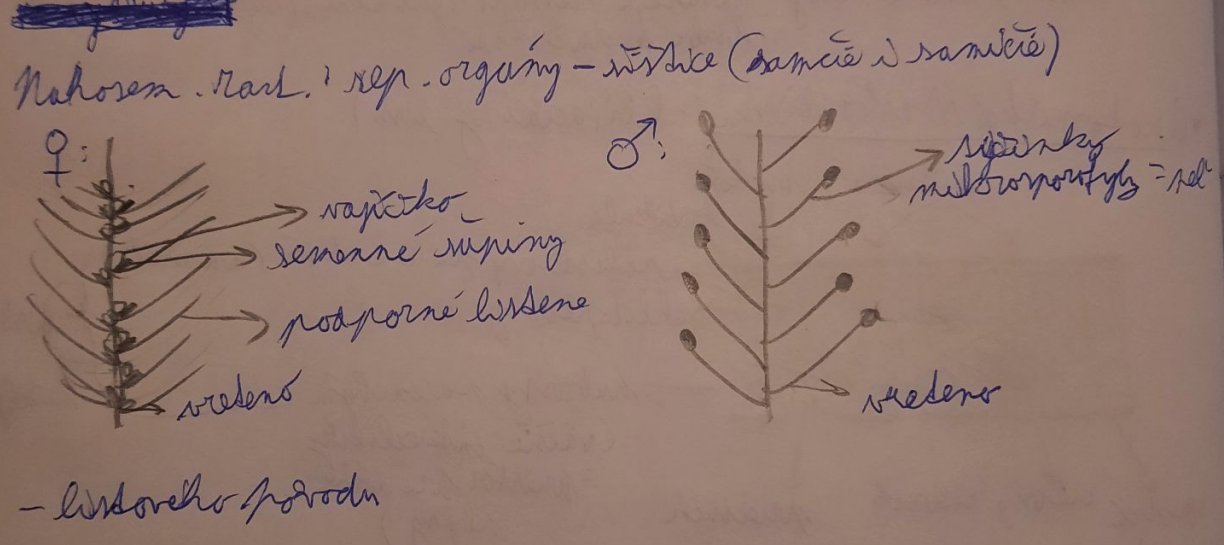 Nahosem. rast.: rep. orgány - šištice (samčie i samičie)
♀:
♂:
vajíčko
semenné šupiny
podporné listene
vreteno
šupinky
mikrosporofyly =
vreteno
- listového pôvodu